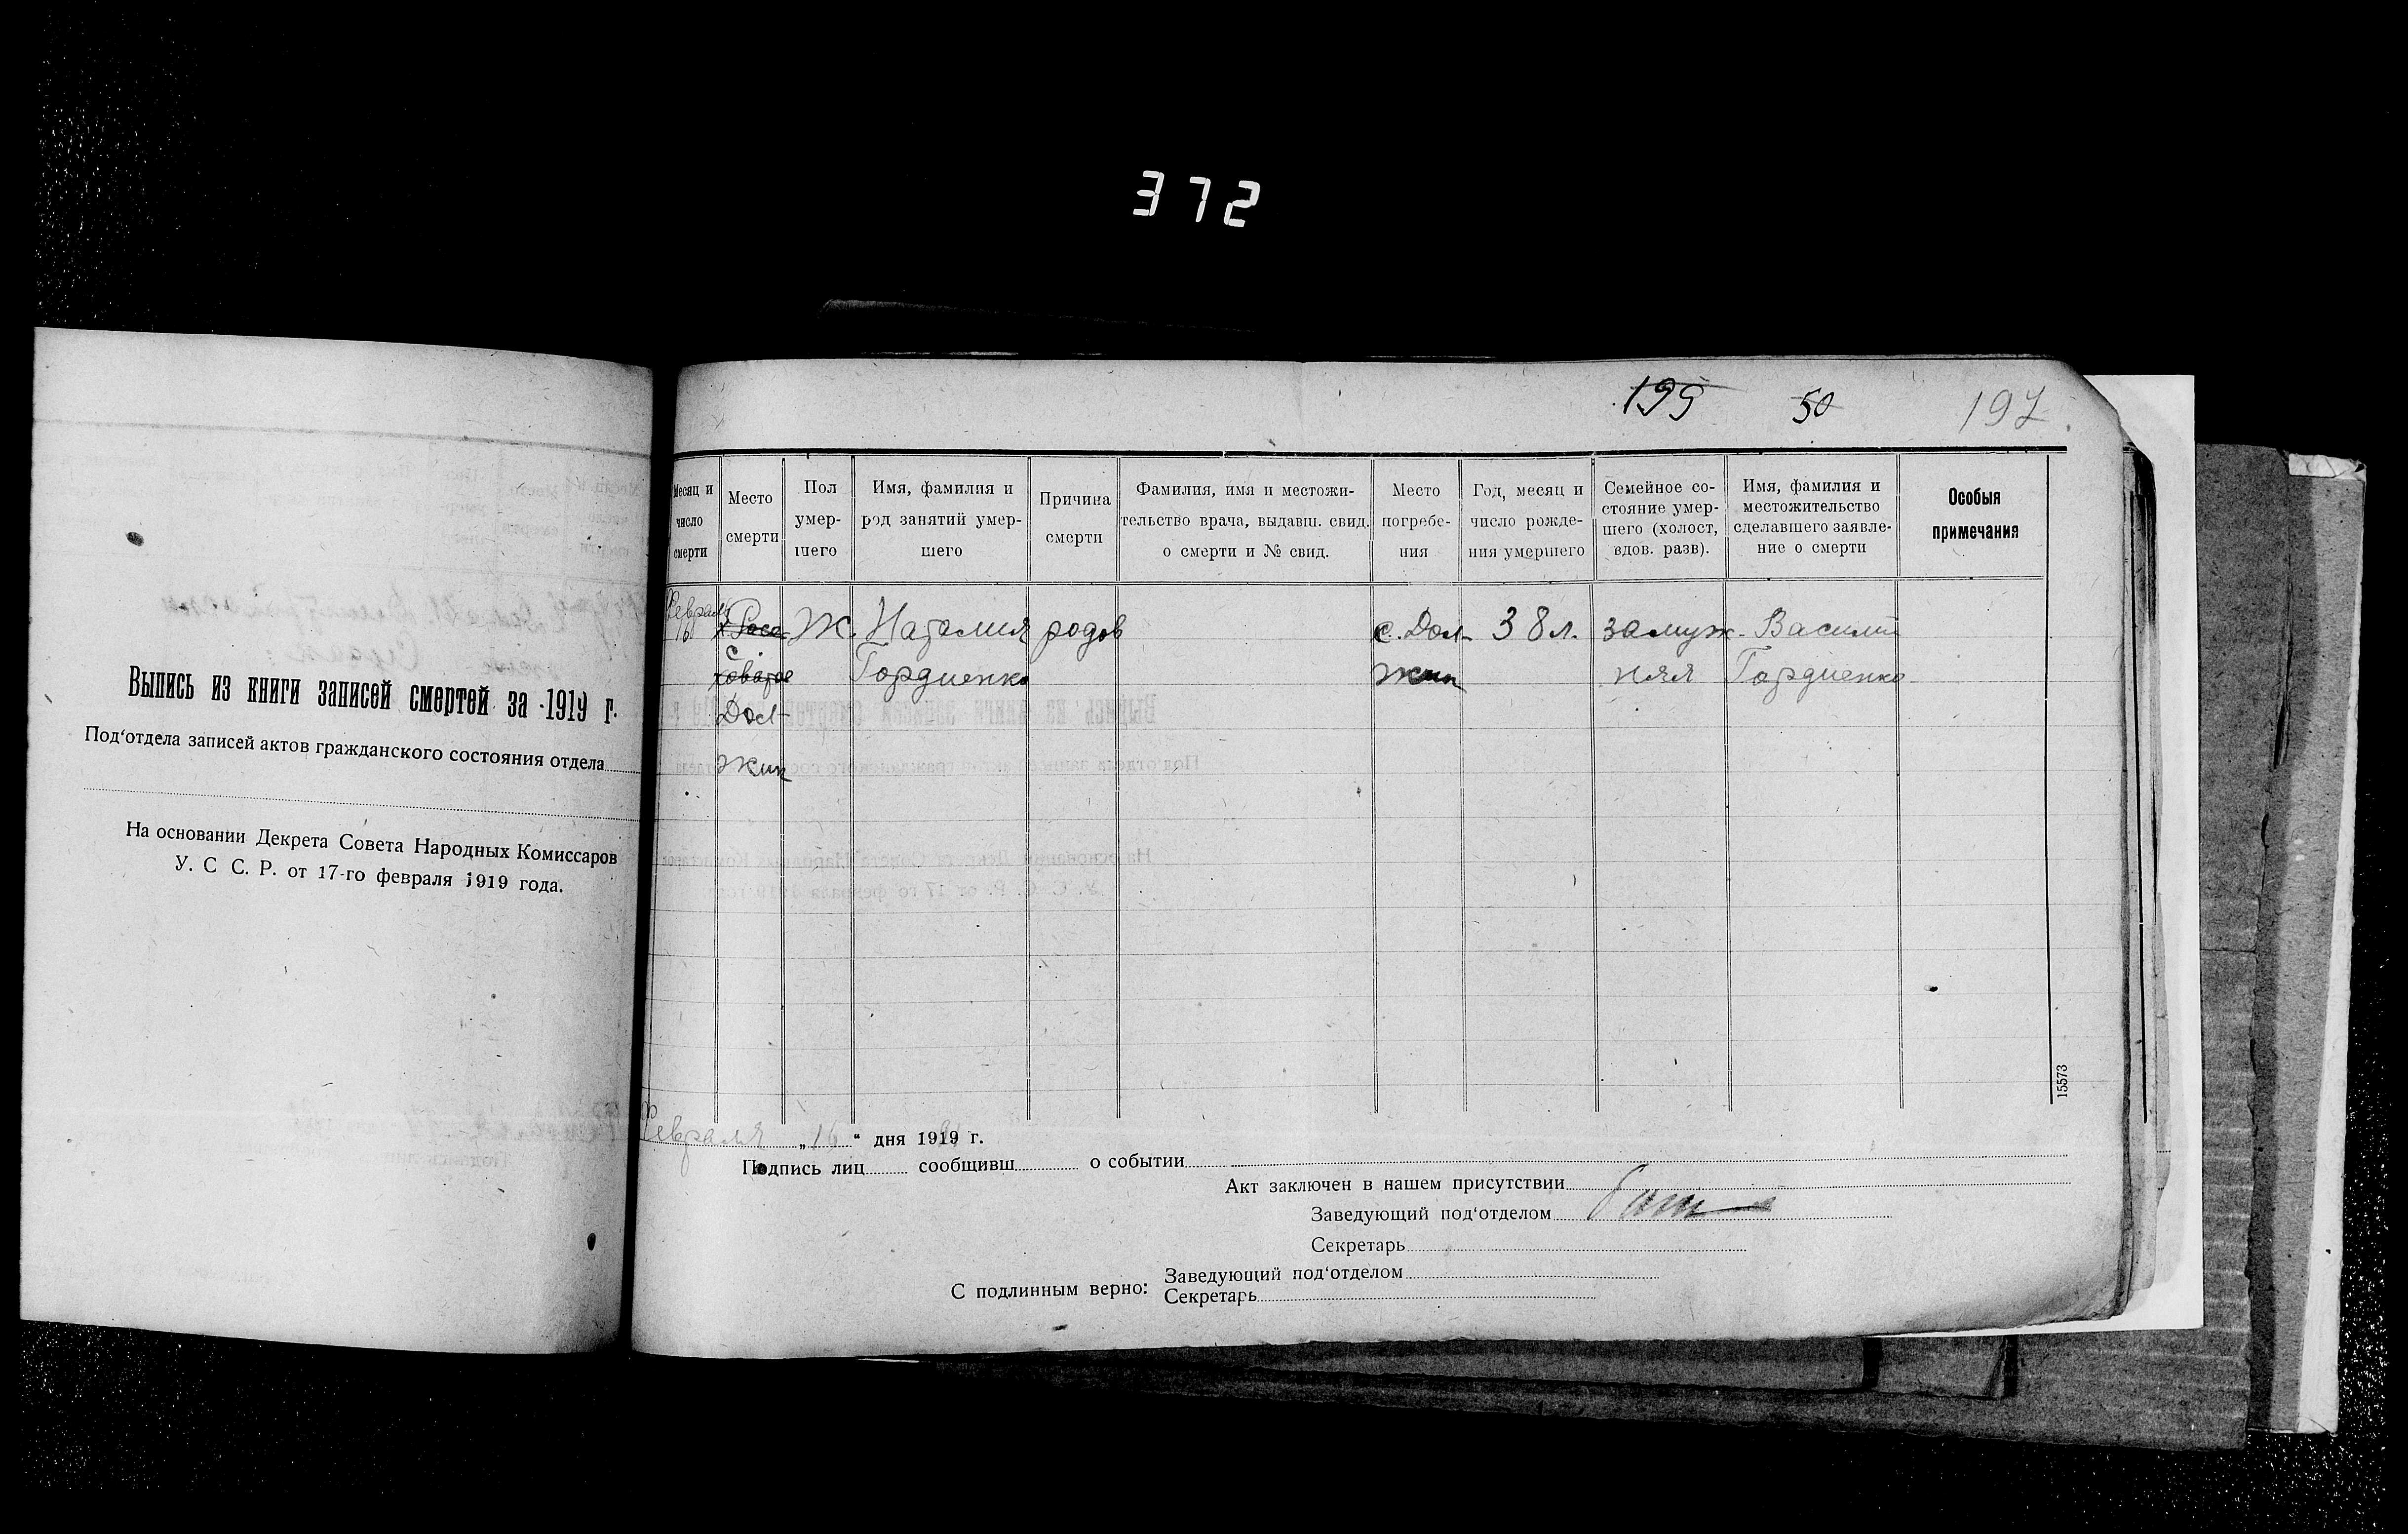 372
199 50 197
Выпись из книги записей смертей за 1919 г.
Под‘отдела записей актов гражданского состояния отдела
На основании Декрета Совета Народных Комиссаров
У. С С. Р. от 17-го февраля 1919 года.
Месяц и число смерти
Место смерти
Пол умер-шего
Имя, фамилия и род занятий умер-шего
Причина смерти
Фамилия, имя и местожи-тельство врача, выдавш. свид. о смерти и № свид.
Место погребе-ния
Год, месяц и число рожде-ния умершего
Семейное со-стояние умер-шего (холост, вдов. разв).
Имя, фамилия и местожительство сделавшего заявле-ние о смерти
Особыя примечания
Февраль
16 Ж. Наталия родов с. Дол- 38 л. замуж- Василий
с. Гордиенко жик няя Гордиенко
Дол-
жик
15573
Февраля „16“ дня 1919 г.
Подпись лиц сообщивш о событии
Акт заключен в нашем присутствии
Заведующий под‘отделом
Секретарь
С подлинным верно: Заведующий под‘отделом
Секретарь